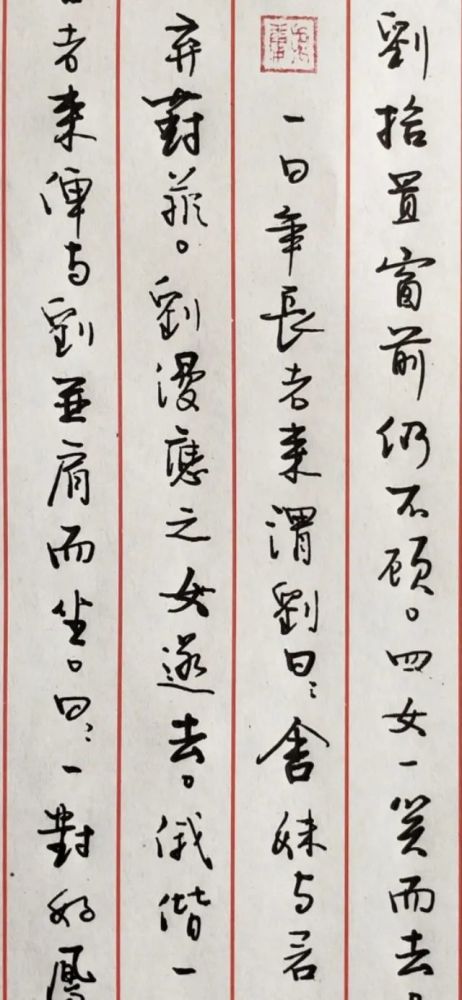 劉拾置窗前仍不顾。四女一笑而去。
一日年長者来謂劉曰：舍妹与君
弃葑菲。劉漫應之女遂去。俄偕一
者来俾与劉並肩而坐。曰：一對好鳳